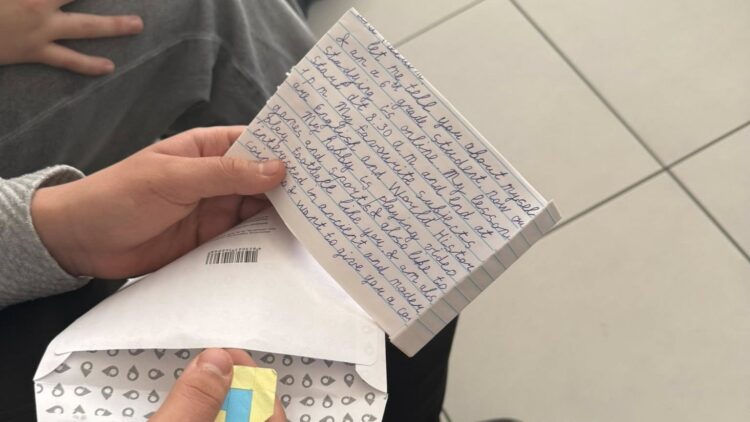 let me tell you about myself
I am a 6 grade student. Now our
studying is online. My lesson
start at 8.30 a.m and end at
1 p.m. My favourite subjects
are English and World History
My hobby is playing video
games and sports. I also like to
play football like you. I am als
interested in ancient and moder
& want to give you a co